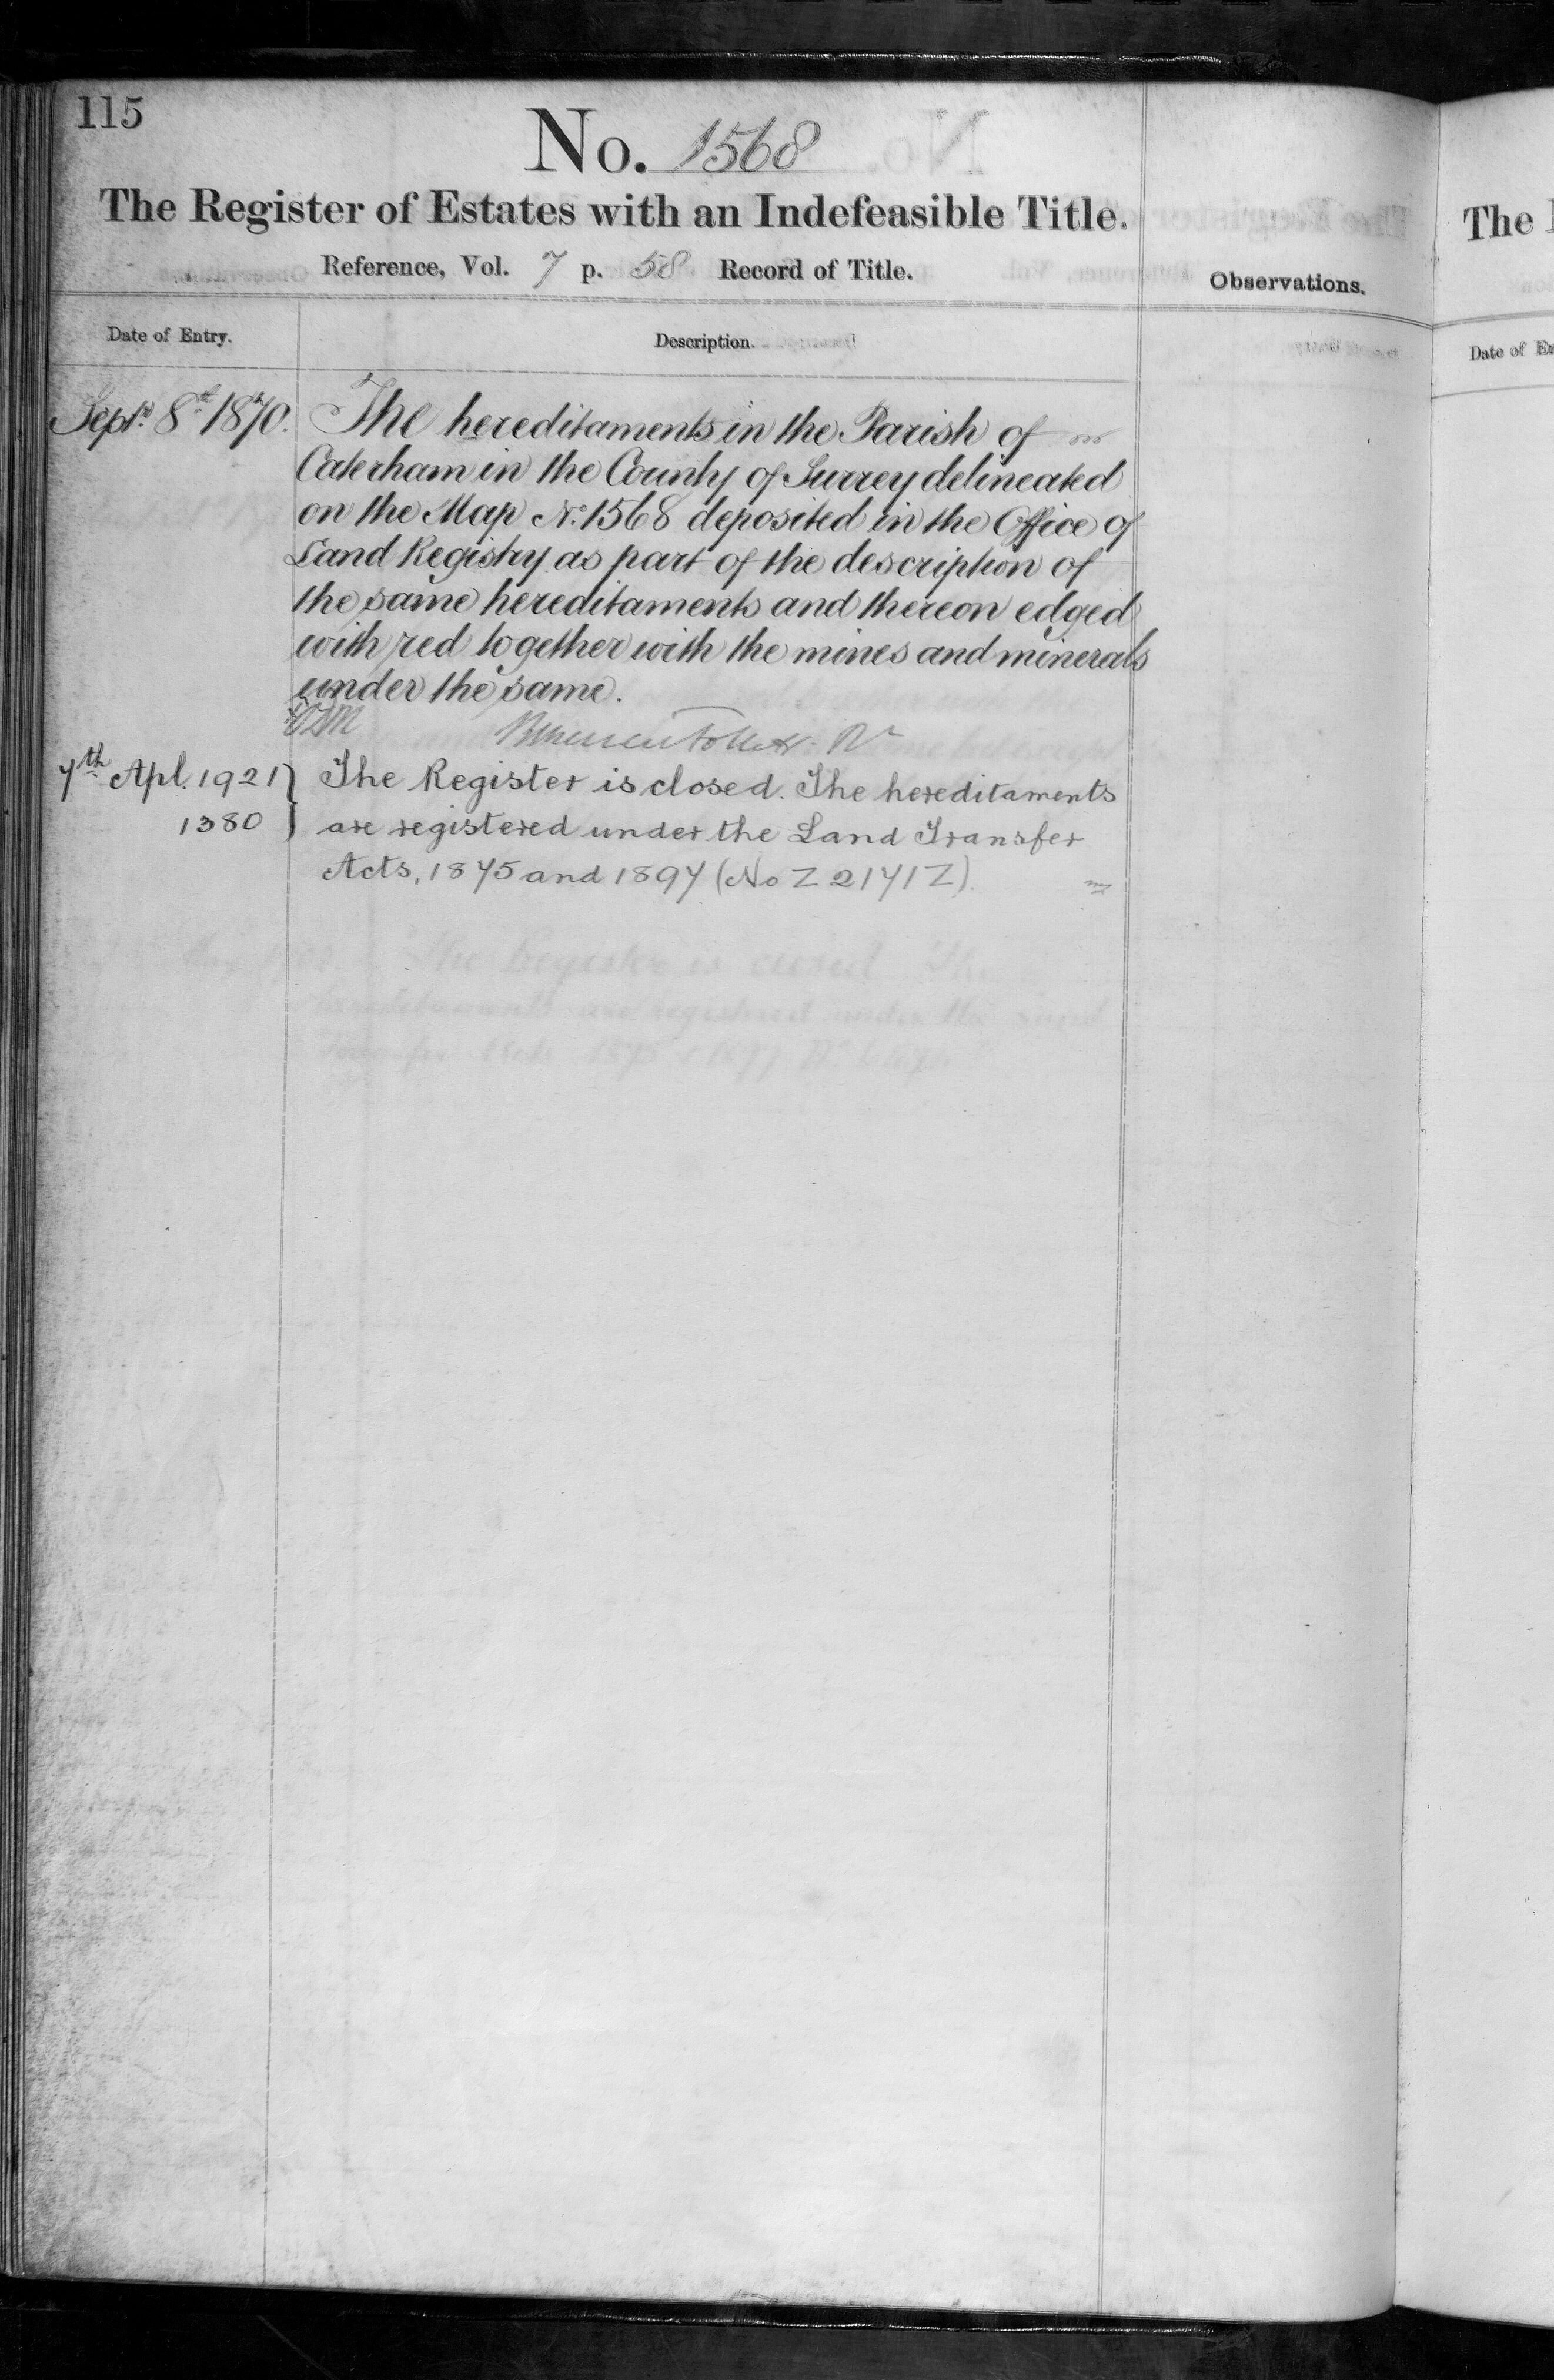 115
No. 1568
The Register of Estates with an Indefeasible Title.
Reference, Vol. 7 p. 58 Record of Title.
Observations.
Date of Entry.
Description.
Septr. 8th 1870.
The hereditaments in the Parish of
Caterham in the County of Surrey delineated
on the Map No. 1568 deposited in the Office of
Land Registry as part of the description of
the same hereditaments and thereon edged
with red together with the mines and minerals
under the same.
7th Apl. 1921
1380
The Register is closed. The hereditaments
are registered under the Land Transfer
Acts, 1875 and 1897 (No Z 2171Z).
The
Date of